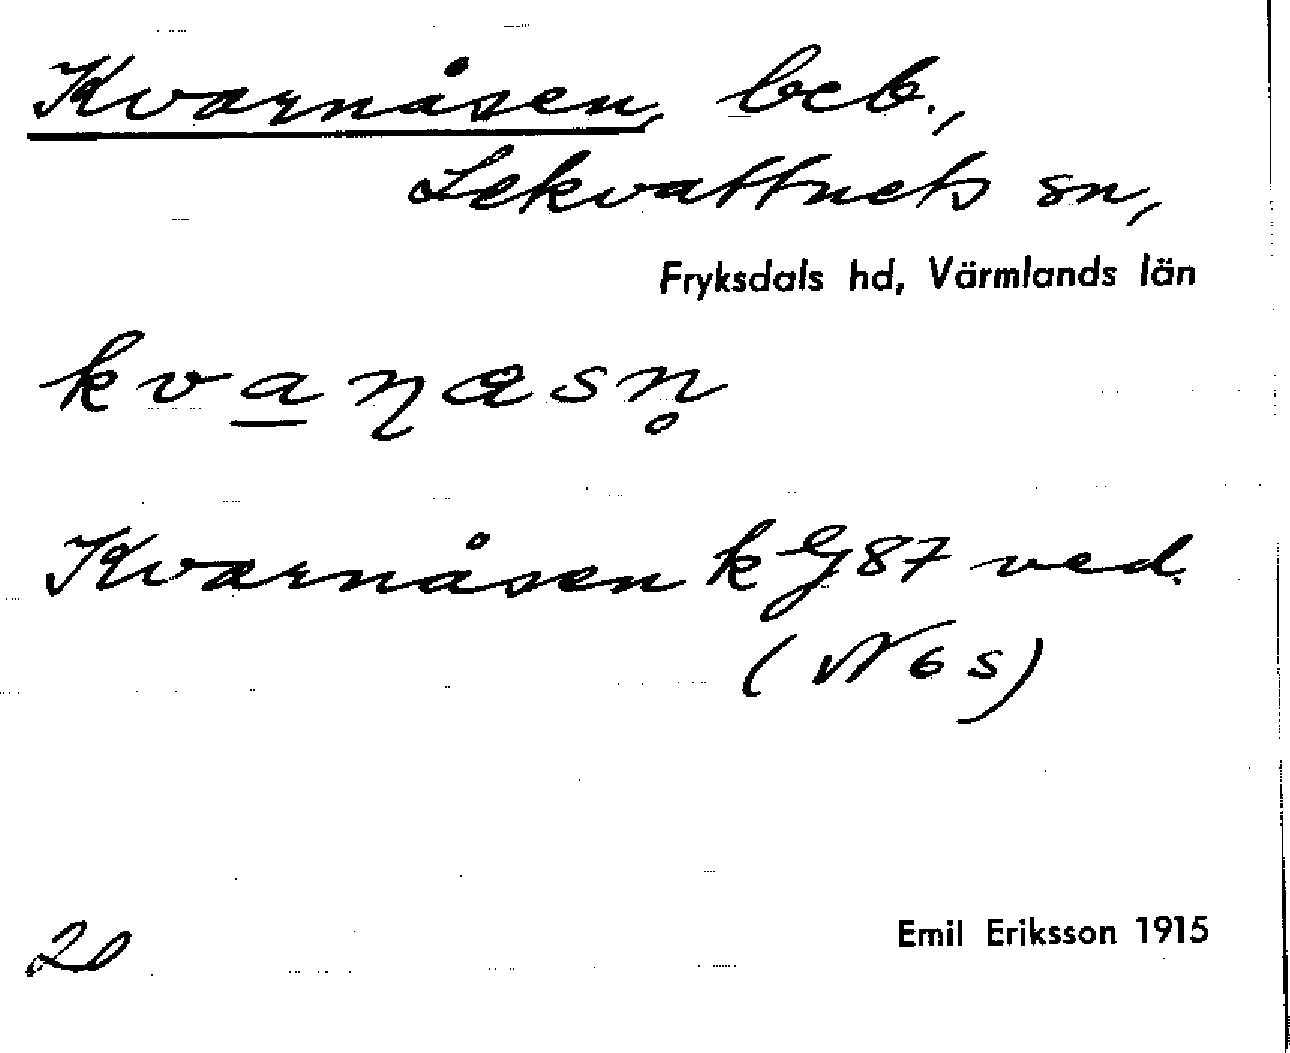 Kvarnåsen, beb.,
Lekvattnets sn,
Fryksdals hd, Värmlands län
kvaɳasn̥
Kvarnåsen k GJ 87 ved.
(N 6 s)
Emil Eriksson 1915